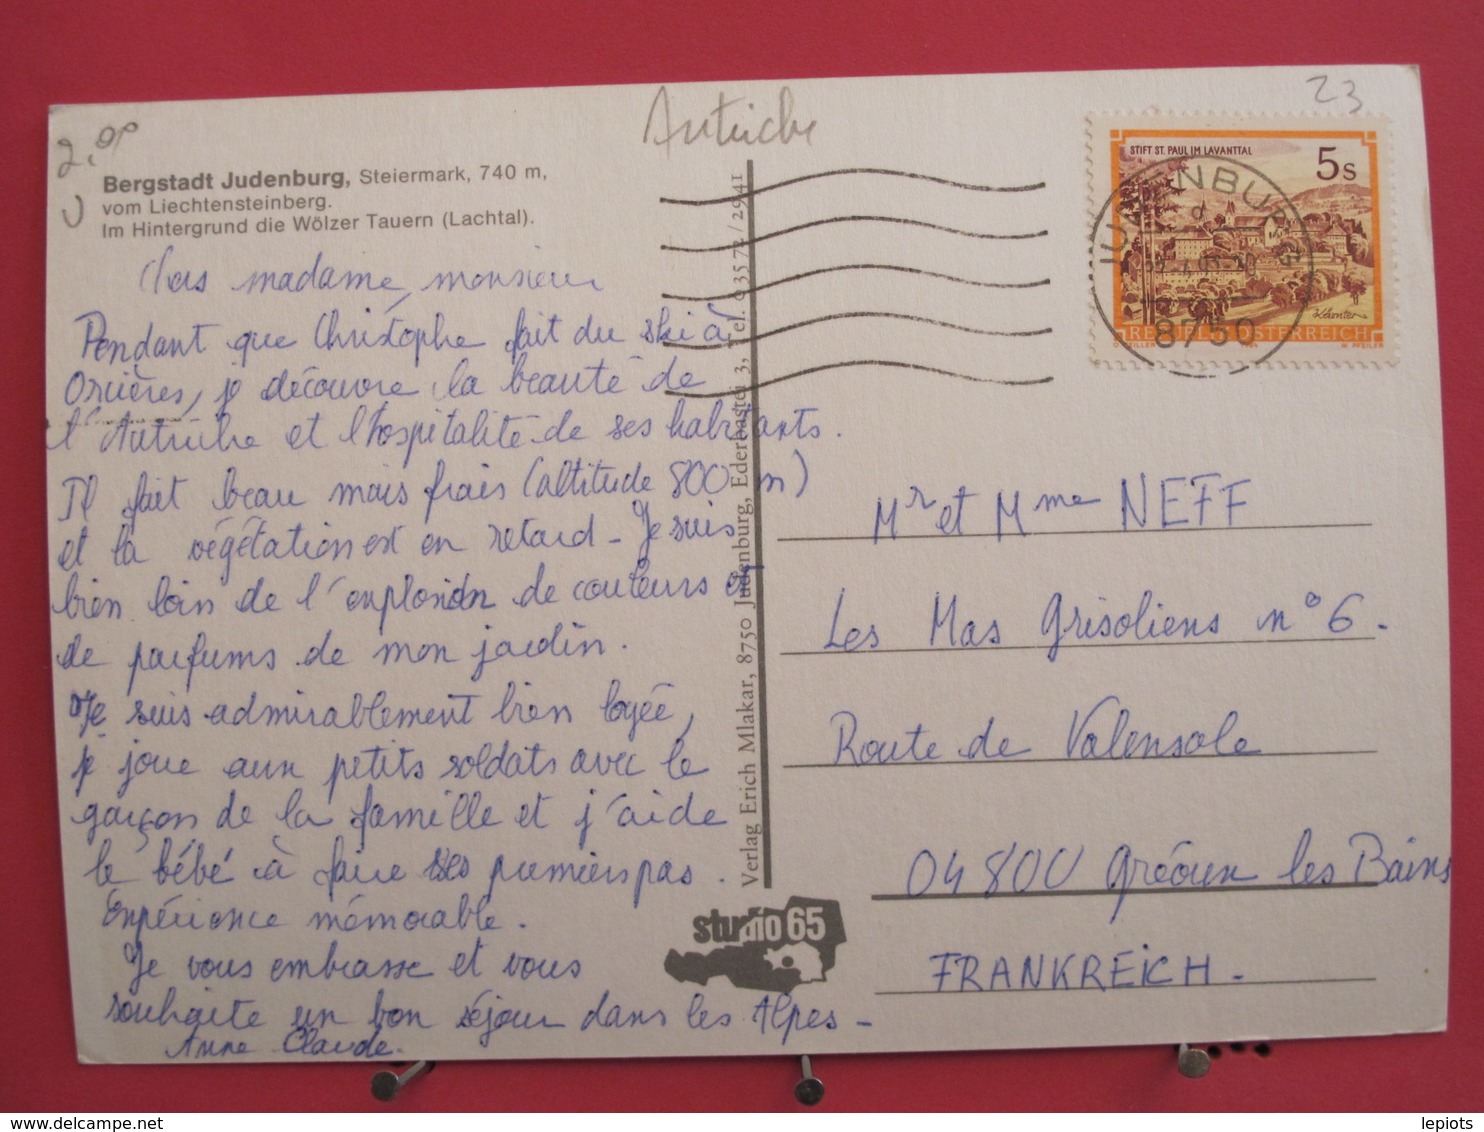 Autriche
23
Bergstadt Judenburg, Steiermark, 740 m,
vom Liechtensteinberg.
Im Hintergrund die Wölzer Tauern (Lachtal).
STIFT ST. PAUL IM LAVANTTAL
5 S
JUDENBURG
8750
REPUBLIK ÖSTERREICH
Chers madame, monsieur
Pendant que Christophe fait du ski à
Orcières, je découvre la beauté de
l'Autriche et l'hospitalité de ses habitants.
Il fait beau mais frais (altitude 800 m)
et la végétation est en retard - Je suis
bien loin de l'explosion de couleurs et
de parfums de mon jardin.
Je suis admirablement bien logée,
je joue aux petits soldats avec le
garçon de la famille et j'aide
le bébé à faire ses premiers pas.
Expérience mémorable.
Je vous embrasse et vous
souhaite un bon séjour dans les Alpes -
Anne Claude.
Verlag Erich Mlakar, 8750 Judenburg, Ederbastei 3, Tel. 03572/2941
studio 65
Mr et Mme NEFF
Les Mas Grisoliens n° 6.
Route de Valensole
04800 Gréoux les Bains
FRANKREICH -
lepiots